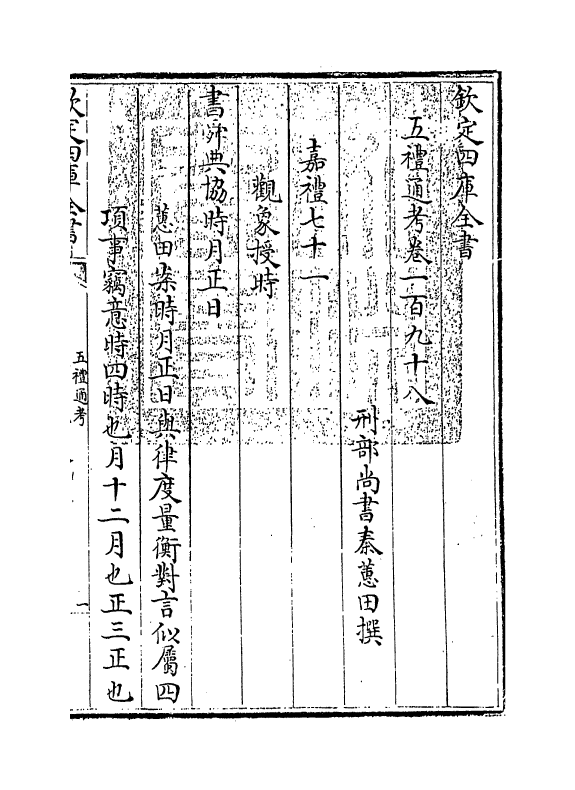 欽定四庫全書
五禮通考卷一百九十八
刑部尚書秦蕙田撰
嘉禮七十一
觀象授時
書舜典協時月正日
蕙田案時月正日與律度量衡對言似屬四
項事竊意時四時也月十二月也正三正也
欽定四庫全書
五禮通考
一